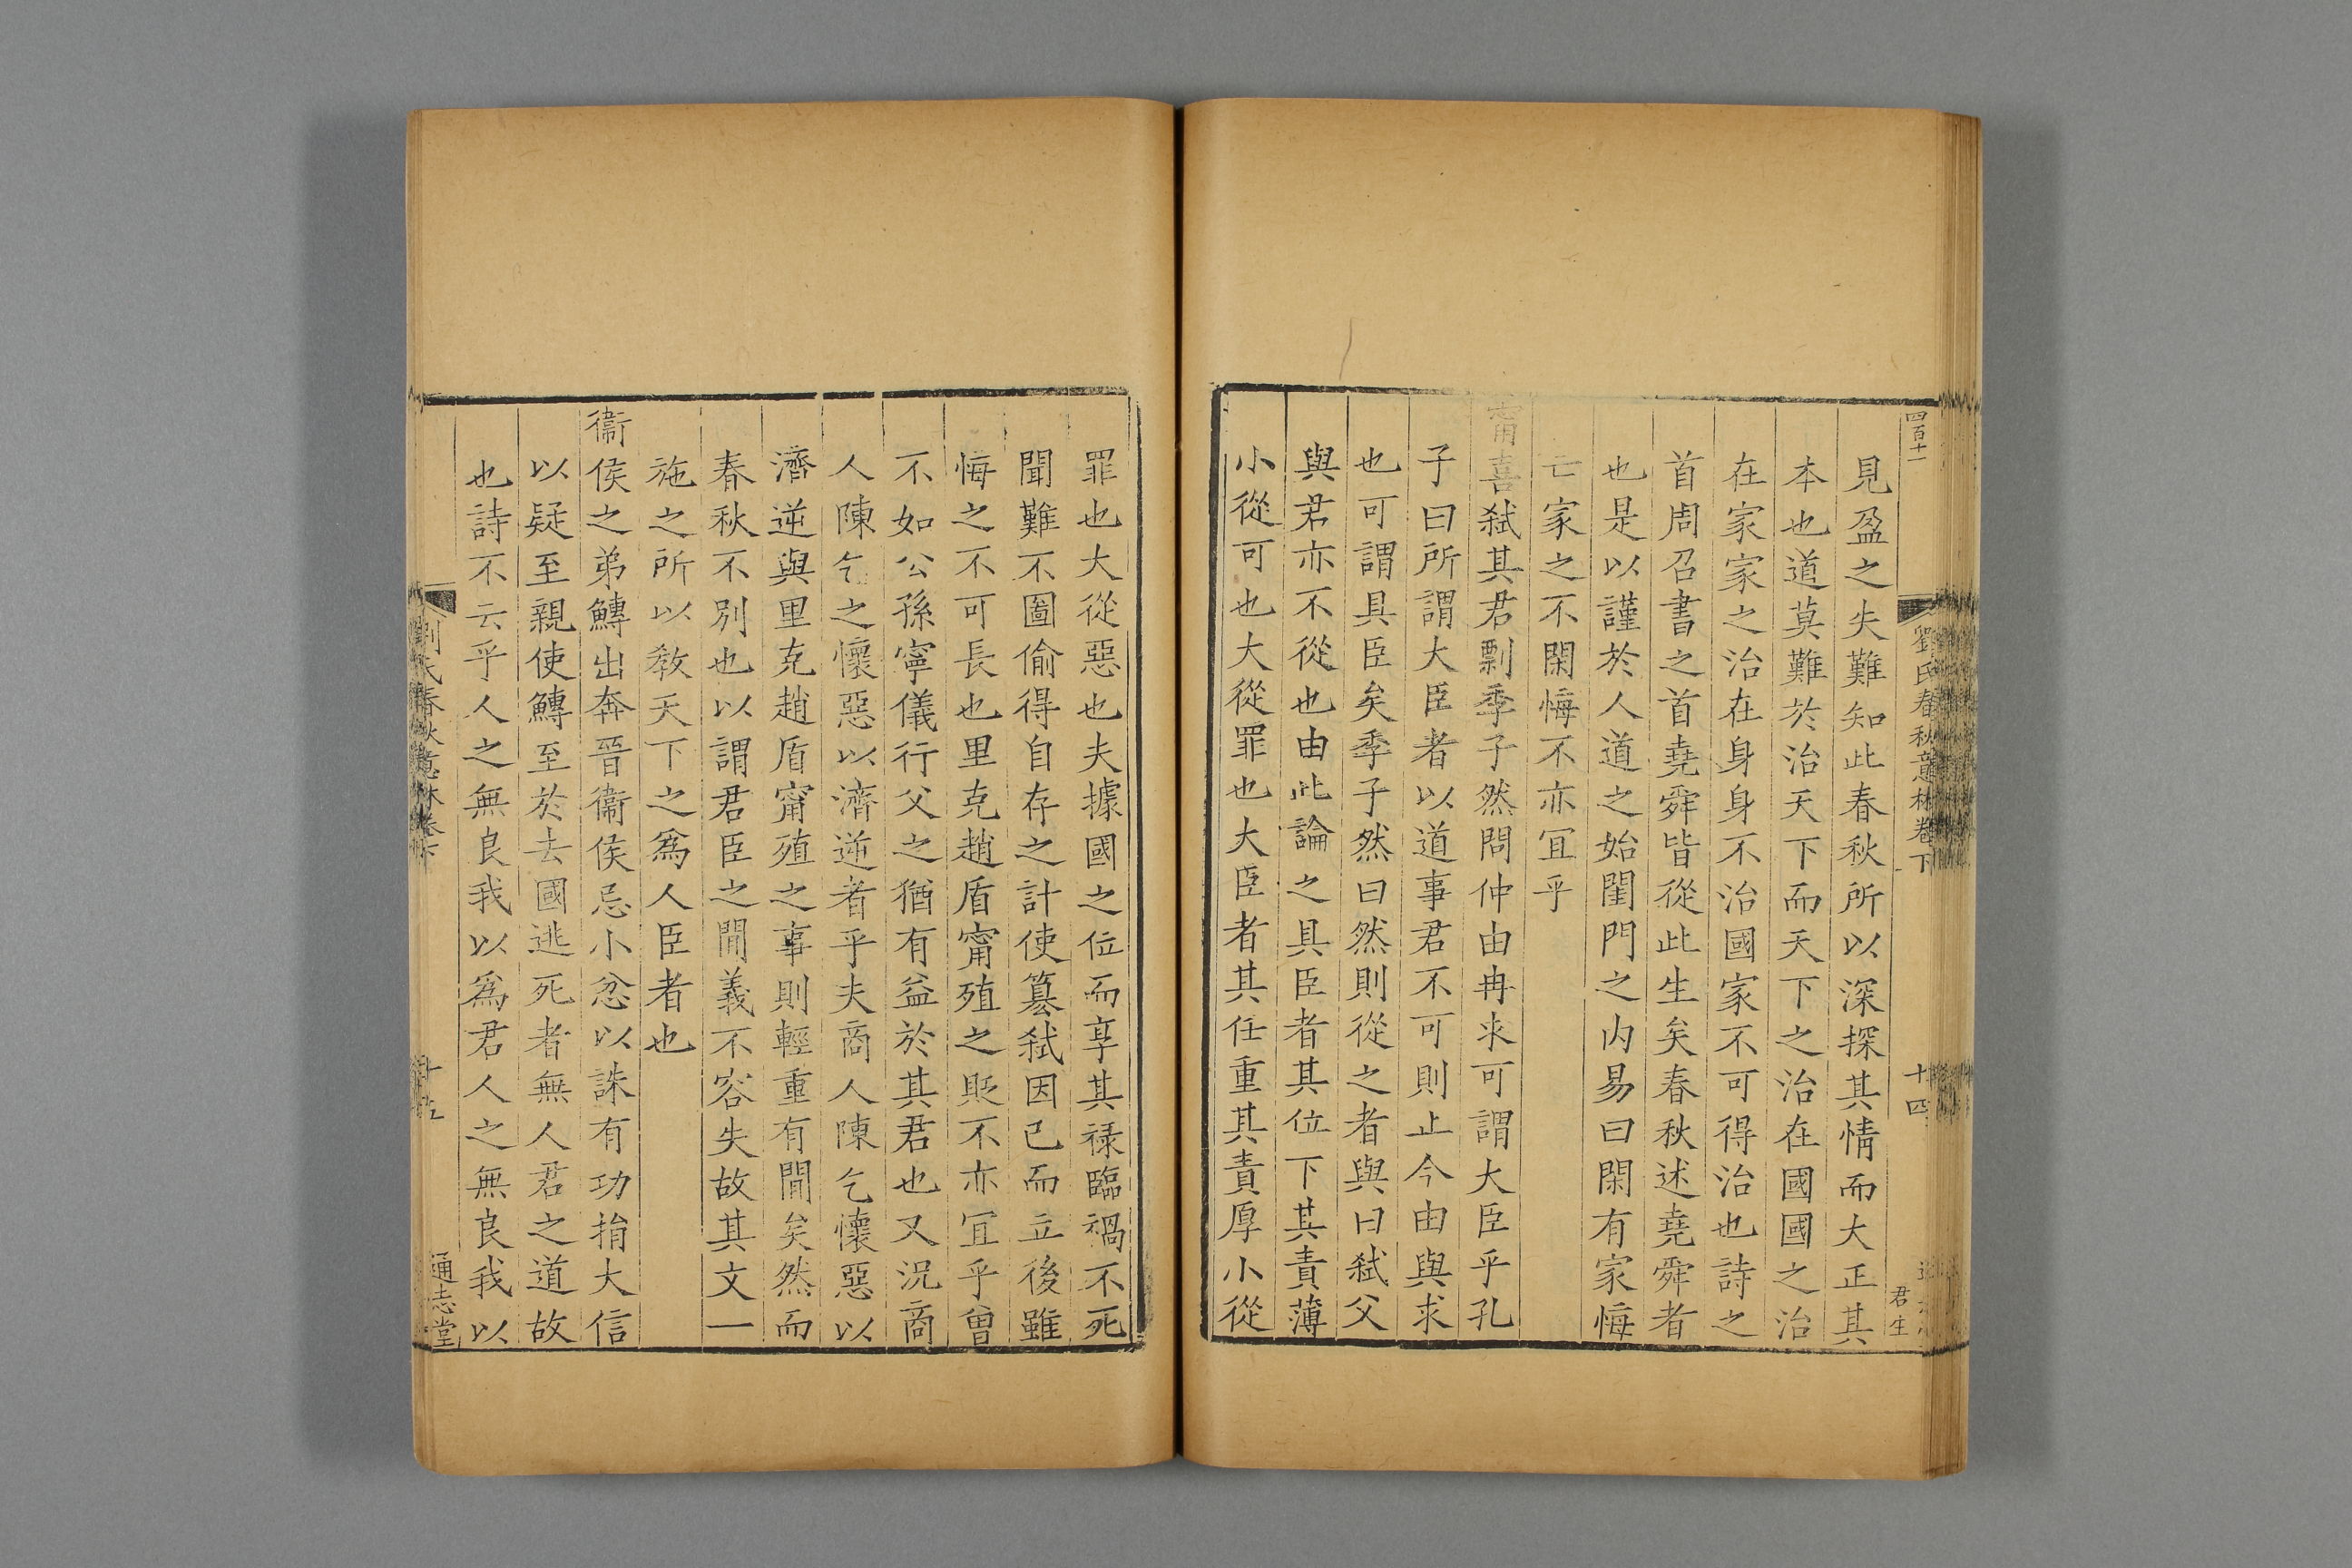 四百十一
劉氏春秋意林卷下
十四
君生
見盈之失難知此春秋所以深探其情而大正其
本也道莫難於治天下而天下之治在國國之治
在家家之治在身身不治國家不可得治也詩之
首周召書之首堯舜皆從此生矣春秋述堯舜者
也是以謹於人道之始閨門之内易曰閑有家悔
亡家之不閑悔不亦冝乎
甯喜弑其君剽季子然問仲由冉求可謂大臣乎孔
子曰所謂大臣者以道事君不可則止今由與求
也可謂具臣矣季子然曰然則從之者與曰弑父
與君亦不從也由此論之具臣者其位下其責薄
小從可也大從罪也大臣者其任重其責厚小從
罪也大從惡也夫據國之位而享其禄臨禍不死
聞難不圖偷得自存之計使簒弑因己而立後雖
悔之不可長也里克趙盾甯殖之貶不亦冝乎曾
不如公孫寧儀行父之猶有益於其君也又況商
人陳乞之懷惡以濟逆者乎夫商人陳乞懷惡以
濟逆與里克趙盾甯殖之事則輕重有閒矣然而
春秋不別也以謂君臣之閒義不容失故其文一
施之所以教天下之爲人臣者也
衞侯之弟鱄出奔晉衞侯忌小忿以誅有功捐大信
以疑至親使鱄至於去國逃死者無人君之道故
也詩不云乎人之無良我以爲君人之無良我以
劉氏春秋意林卷下
十五
通志堂